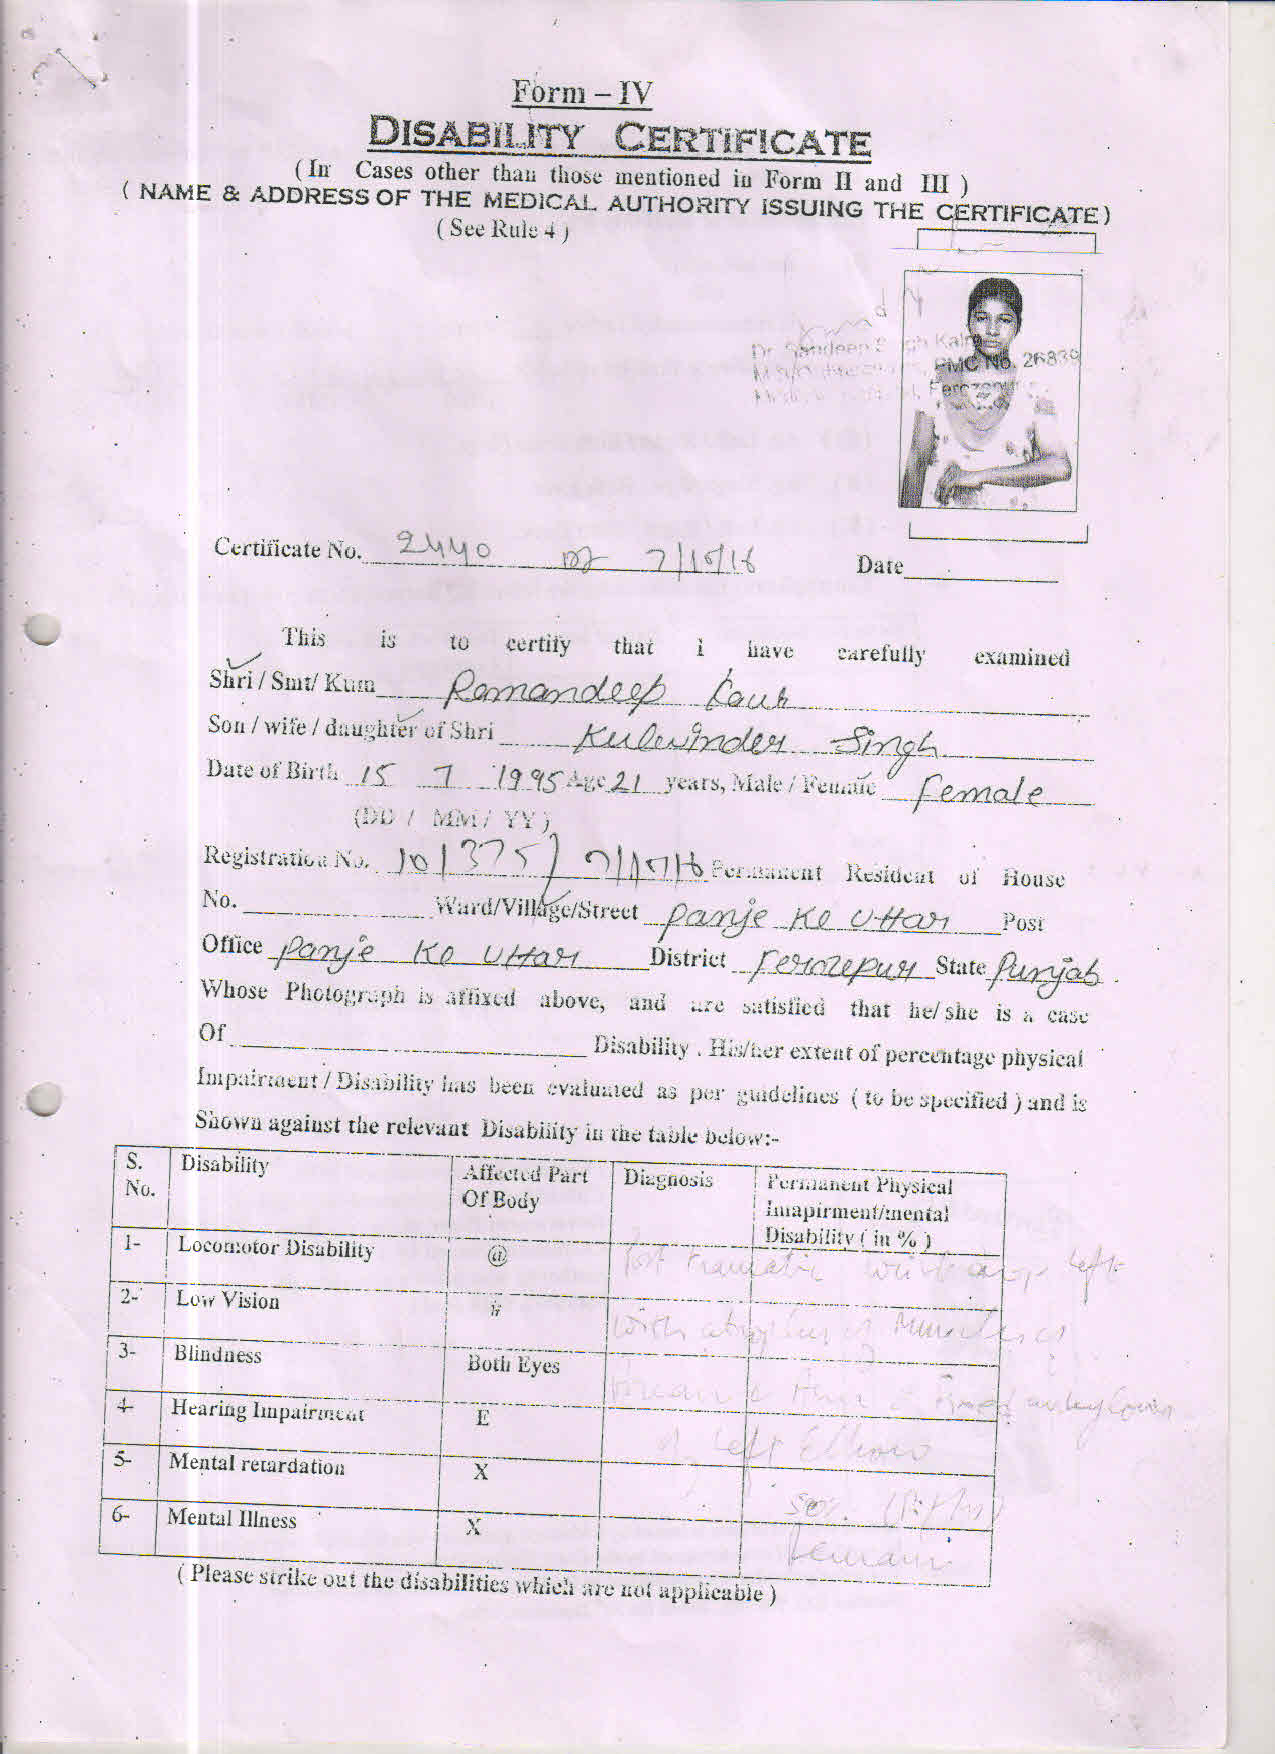 Form – IV
DISABILITY CERTIFICATE
( In Cases other than those mentioned in Form II and III )
( NAME & ADDRESS OF THE MEDICAL AUTHORITY ISSUING THE CERTIFICATE)
( See Rule 4 )
Dr. Sandeep Singh
PMC No. 26839
Certificate No. 2440 7/10/16 Date
This is to certify that I have carefully examined
Shri / Smt/ Kum Ramandeep Kaur
Son / wife / daughter of Shri Kulwinder Singh
Date of Birth 15 7 1995 Age 21 years, Male / Female Female
(DD / MM / YY )
Registration No. 101375/ 7/10/16 Permanent Resident of House
No. Ward/Village/Street Panje Ke Uttar Post
Office Panje Ke Uttar District Ferozepur State Punjab .
Whose Photograph is affixed above, and are satisfied that he/ she is a case
Of Disability . His/her extent of percentage physical
Impairment / Disability has been evaluated as per guidelines ( to be specified ) and is
Shown against the relevant Disability in the table below:-
S. No. Disability Affected Part Of Body Diagnosis Permanent Physical Imapirment/mental Disability ( in % )
1- Locomotor Disability @ Post traumatic wrist drop left
2- Low Vision # with atrophy of Muscles of
3- Blindness Both Eyes
4- Hearing Impairment E of left Elbow
5- Mental retardation X
6- Mental Illness X
( Please strike out the disabilities which are not applicable )